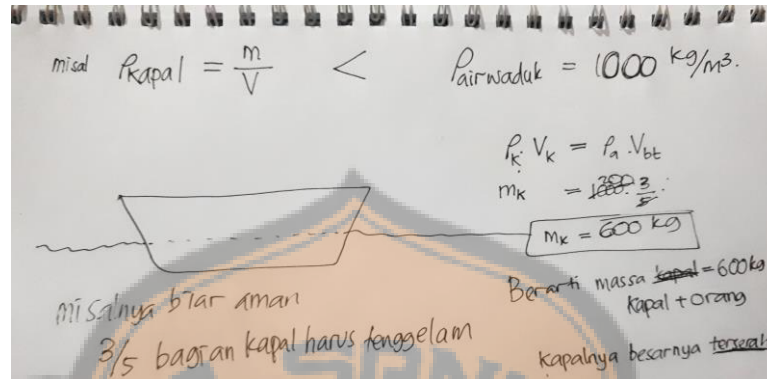 misal ρkapal = m/V < ρairwaduk = 1000 kg/m³.
ρk. Vk = ρa . Vbt
mk = 3/5 .
mk = 600 kg
Berarti massa kapal = 600 kg
kapal + orang
misalnya biar aman
3/5 bagian kapal harus tenggelam
kapalnya besarnya terserah